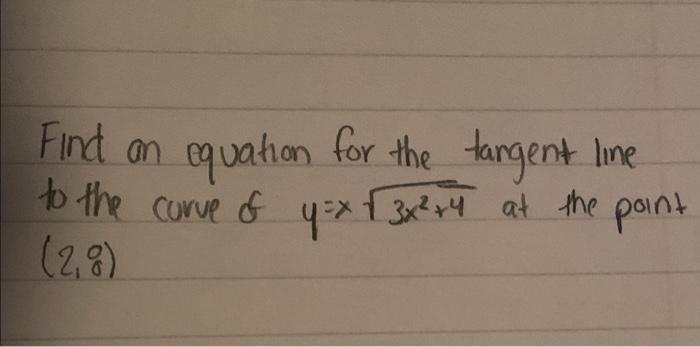 Find an equation for the tangent line
to the curve of y=x√3x²+4 at the point
(2,8)